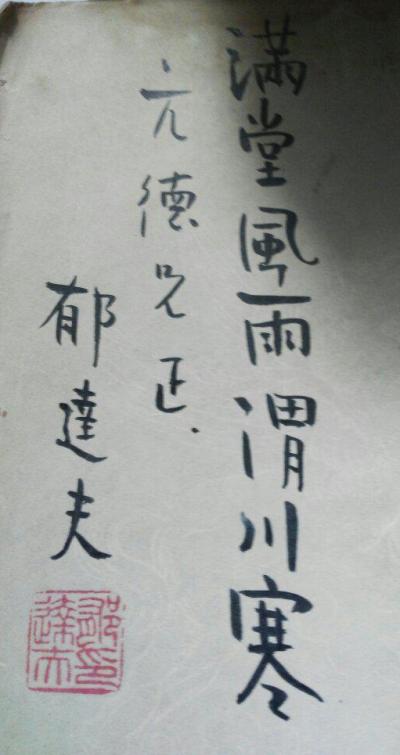 滿堂風雨渭川寒
亢德兄正.
郁達夫
郁達夫印